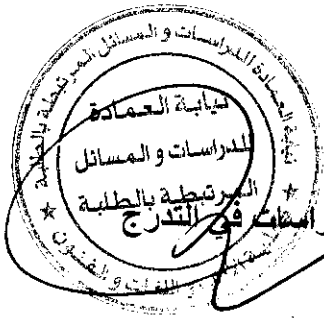 نيابة العمادة للدراسات و المسائل المرتبطة بالطلبة
نيابة العمادة
للدراسات و المسائل
المرتبطة بالطلبة
في التدرج
اللغات و الفنون